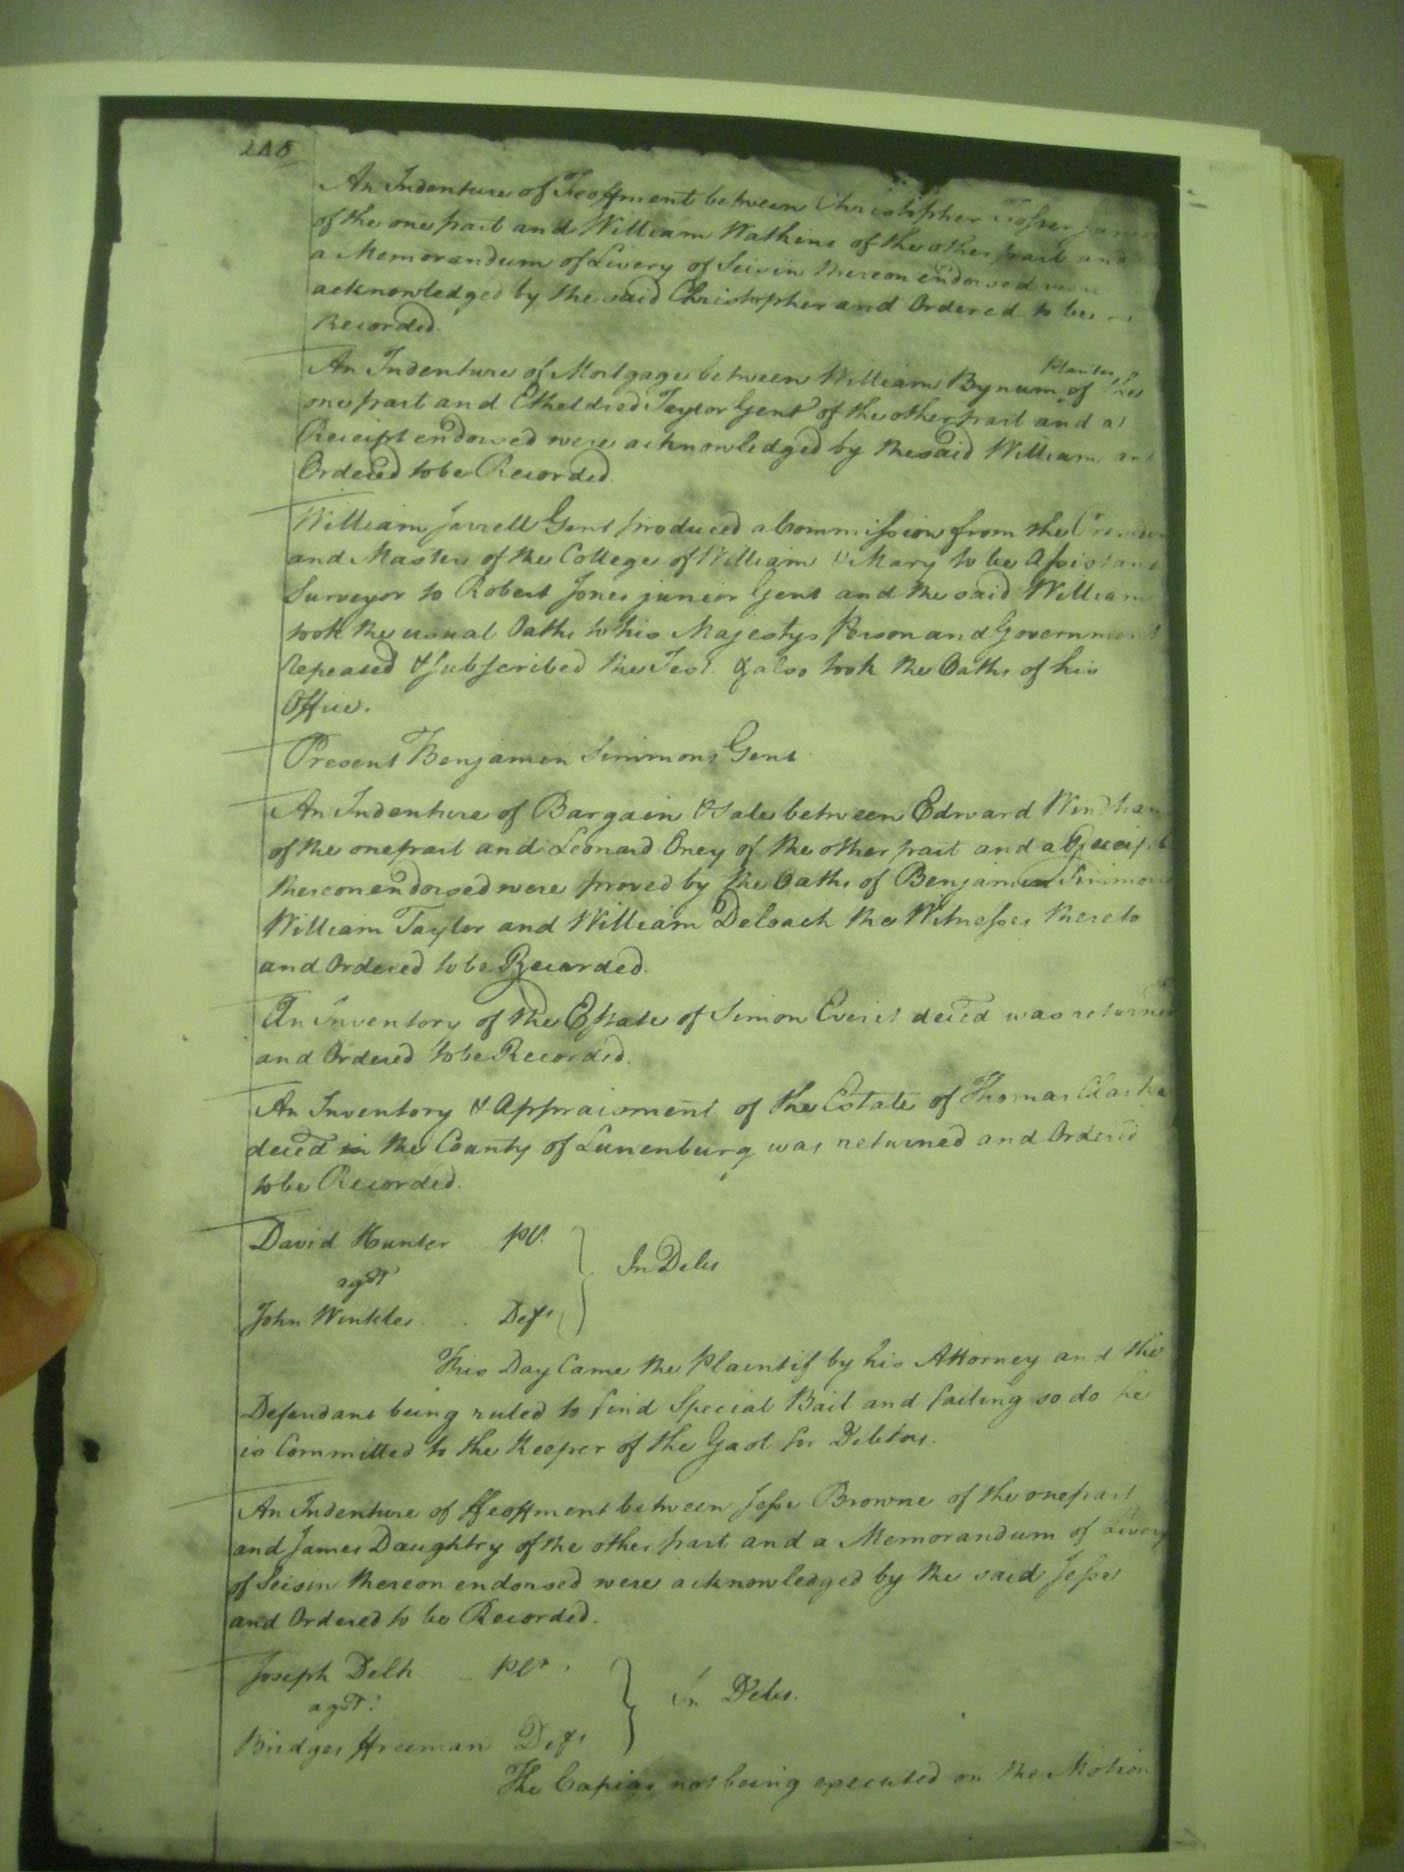 An Indenture of Feoffment between Christopher
of the one part and William Watkins of the other part and
a Memorandum of Livery of Seisin thereon endorsed were
acknowledged by the said Christopher and Ordered to be
Recorded.
An Indenture of Mortgage between William Bynum Planter of the
one part and Etheldred Taylor Gent of the other part and a
Receipt endorsed were acknowledged by the said William and
Ordered to be Recorded
William Jarrell Gent produced a Commission from the
and Masters of the College of William & Mary to be Assistant
Surveyor to Robert Jones junior Gent and the said William
took the usual Oaths to his Majestys Person and Government
repeated & Subscribed the Test & also took the Oaths of his
Office.
Present Benjamin Simmons Gent
An Indenture of Bargain & Sale between Edward Windham
of the one part and Leonard Oney of the other part and a Receipt
thereon endorsed were proved by the Oaths of Benjamin Simmons
William Taylor and William Deloach the Witnesses thereto
and Ordered to be Recorded.
An Inventory of the Estate of Simon Everit deced was returned
and Ordered to be Recorded.
An Inventory & Appraisment of the Estate of Thomas Clarke
deced in the County of Lunenburg was returned and Ordered
to be Recorded.
David Hunter Plt.
agst In Debt
John Winkles Deft
This Day Came the Plaintif by his Attorney and the
Defendant being ruled to find Special Bail and failing so do he
is Committed to the Keeper of the Gaol for Debtors.
An Indenture of Ffeoffment between Jesse Browne of the one part
and James Daughtry of the other part and a Memorandum of Livery
of Seisin thereon endorsed were acknowledged by the said Jesse
and Ordered to be Recorded.
Joseph Delk Plt.
agst. In Debt.
Bridges Ffreeman Deft
The Capias not being executed on the Motion